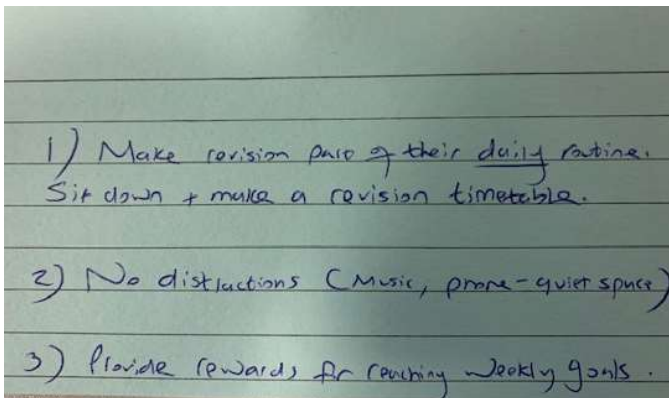 1) Make revision part of their daily routine.
Sit down + make a revision timetable.
2) No distractions (Music, phone - quiet space)
3) Provide rewards for reaching weekly goals.